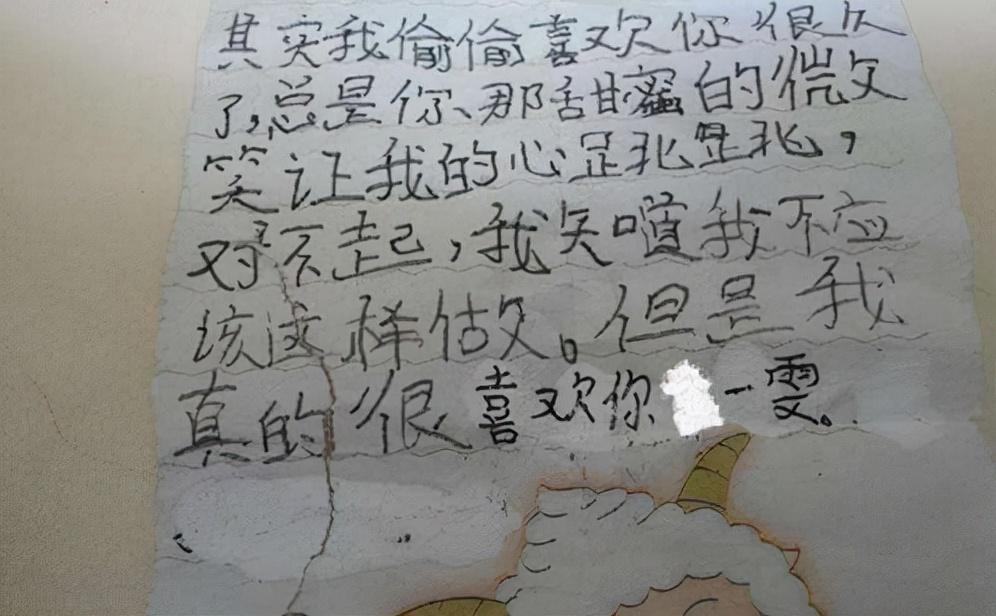 其实我偷偷喜欢你很久
了,总是你、那甜蜜的微
笑让我的心是兆是兆,
对不起,我矢噵我不应
该这样做。但是我
真的很喜欢你 一雯。